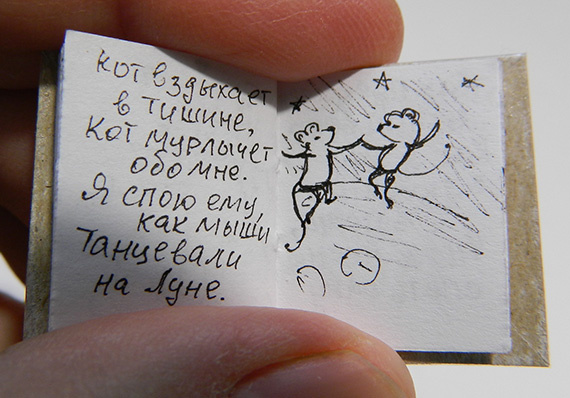 Кот вздыхает
в тишине,
Кот мурлычет
обо мне.
Я спою ему,
как мыши
Танцевали
на Луне.